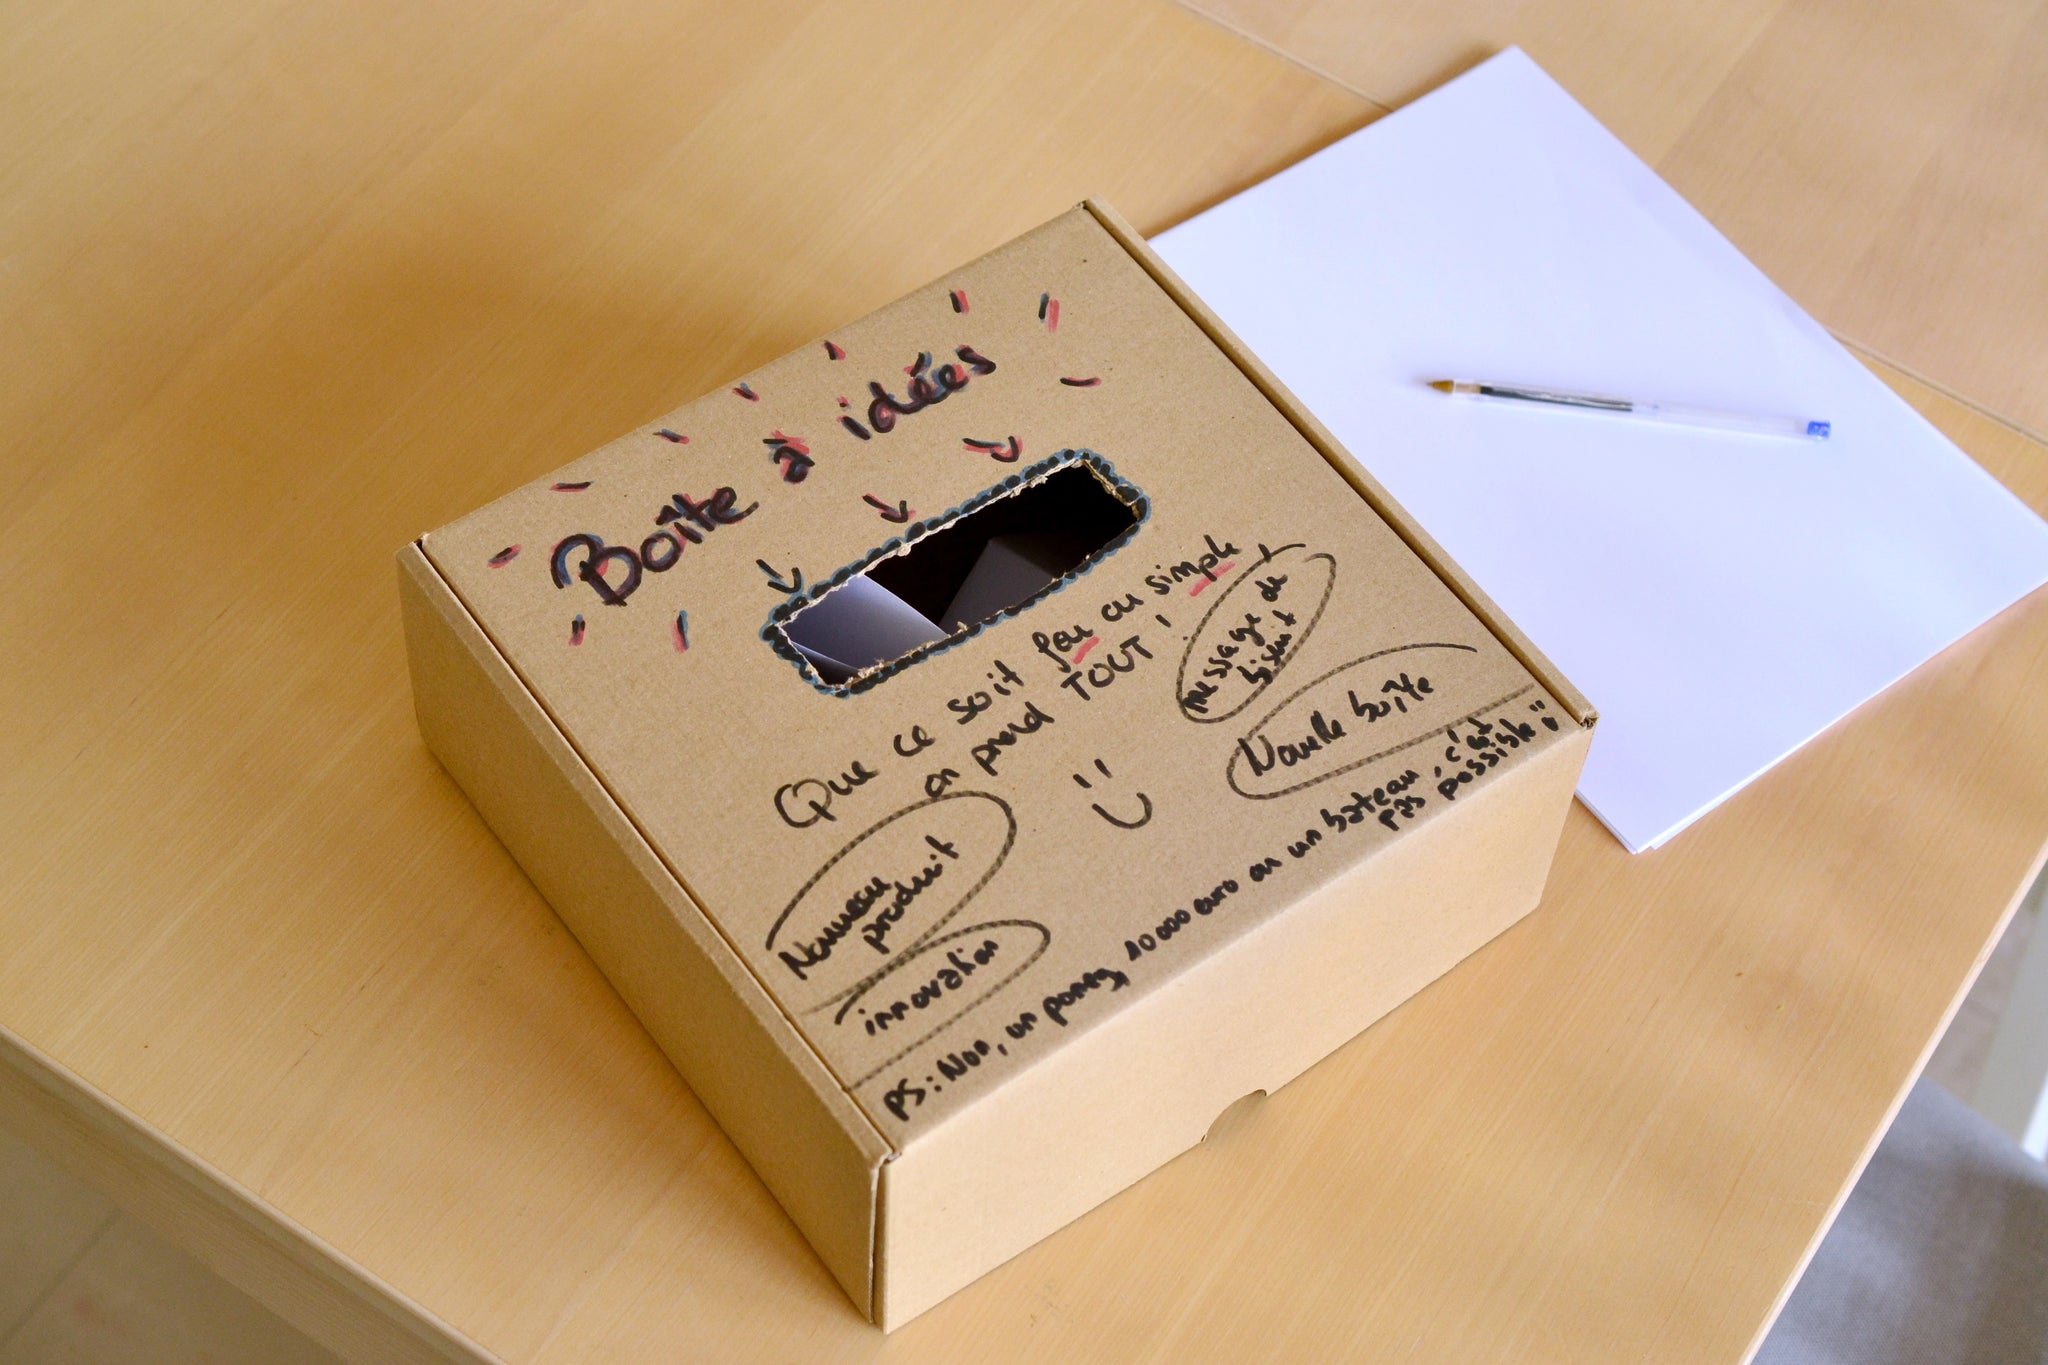 Boîte à idées
Que ce soit fou ou simple,
on prend TOUT !
message de
biscuit
Nouvelle boîte
Nouveau
produit
innovation
PS : Non, un poney, 10000 euro ou un bateau, c'est
pas possible